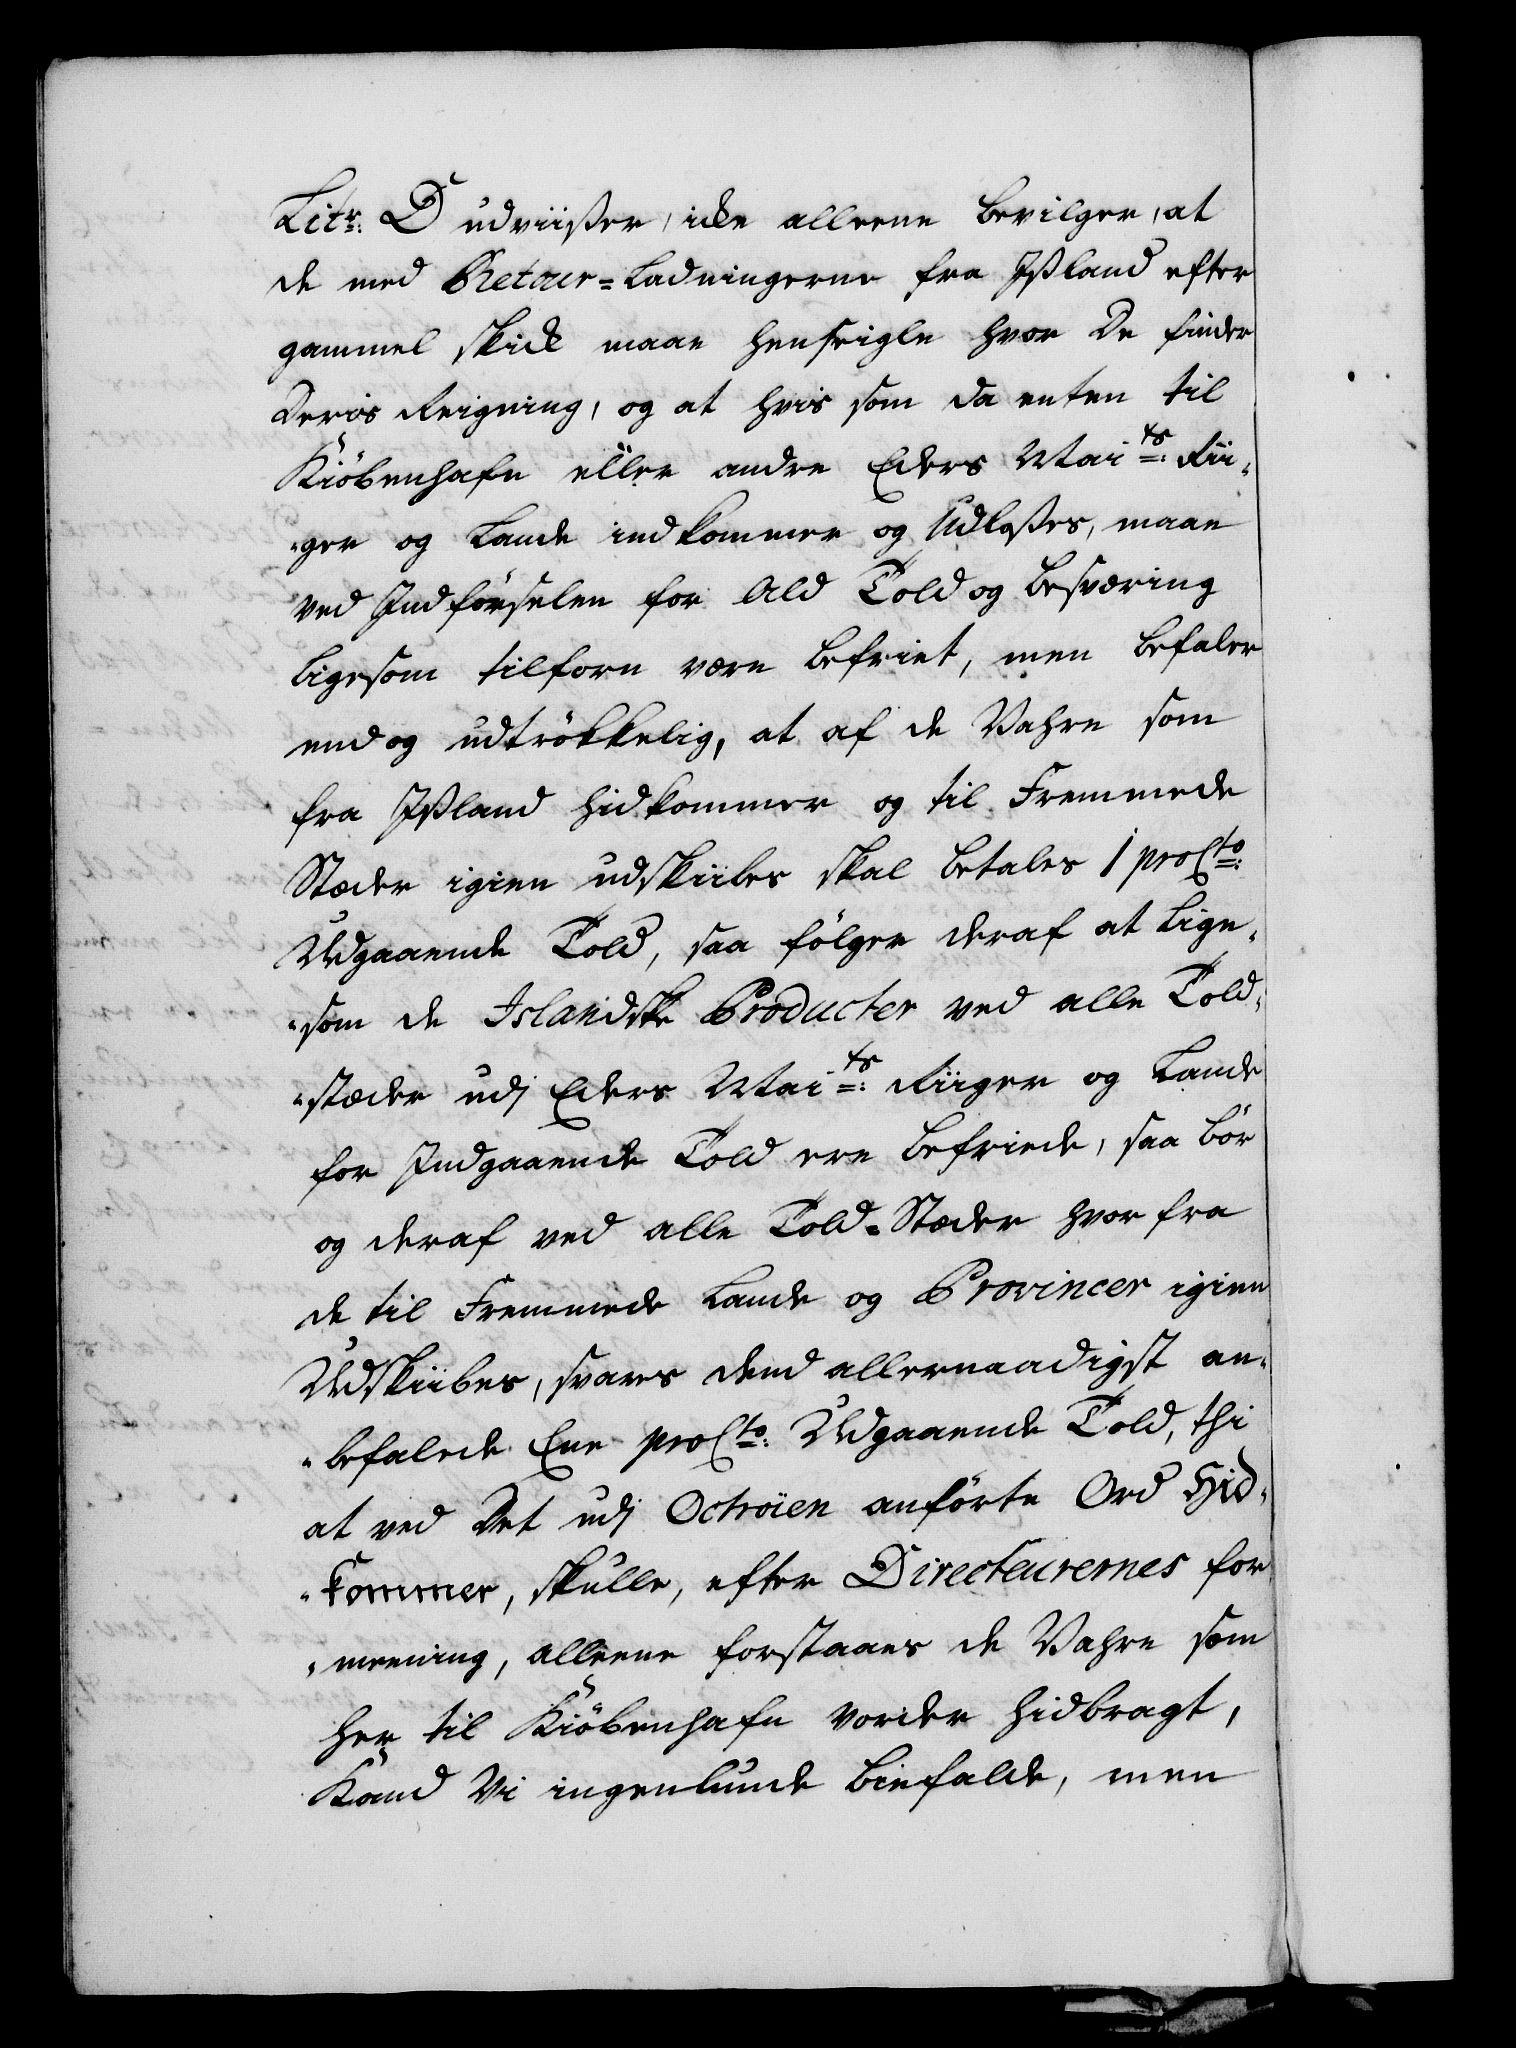 Litr: D udviißer, icke alleene bevilger, at
de med Retour=Ladningerne fra Ißland efter
gammel skick maae henseigle hvor De finder
Deris Reigning, og at hvis som da enten til
Kiöbenhafn eller andre Eders Maits: Rii„
„ger og Lande indkommer og Udloßes, maae
ved Indförselen for Ald Told og besværing
ligesom tilforn være befriet, men befaler
endog udtrökkelig, at af de Vahre som
fra Ißland hidkommer og til Fremmede
Stæder igien udskiibes skal betales 1 proCto:
Udgaaende Told, saa fölger deraf at lige„
„som de Islandske Producter ved alle Told„
„stæder udj Eders Maits: Riiger og Lande
for Indgaaende Told ere befriede, saa bör
og deraf ved alle Told=Stæder hvorfra
de til Fremmede Lande og Provincer igien
Udskiibes, svares dend allernaadigst an„
„befalede Ene proCto: Udgaaende Told, thi
at ved Det udj Octroien anförte Ord Hid„
„kommer, skulle, efter Directeurernes for
„meening, alleene forstaaes de Vahre som
her til Kiöbenhafn vorder hidbragt,
Kand Vi ingenlunde biefalde, men